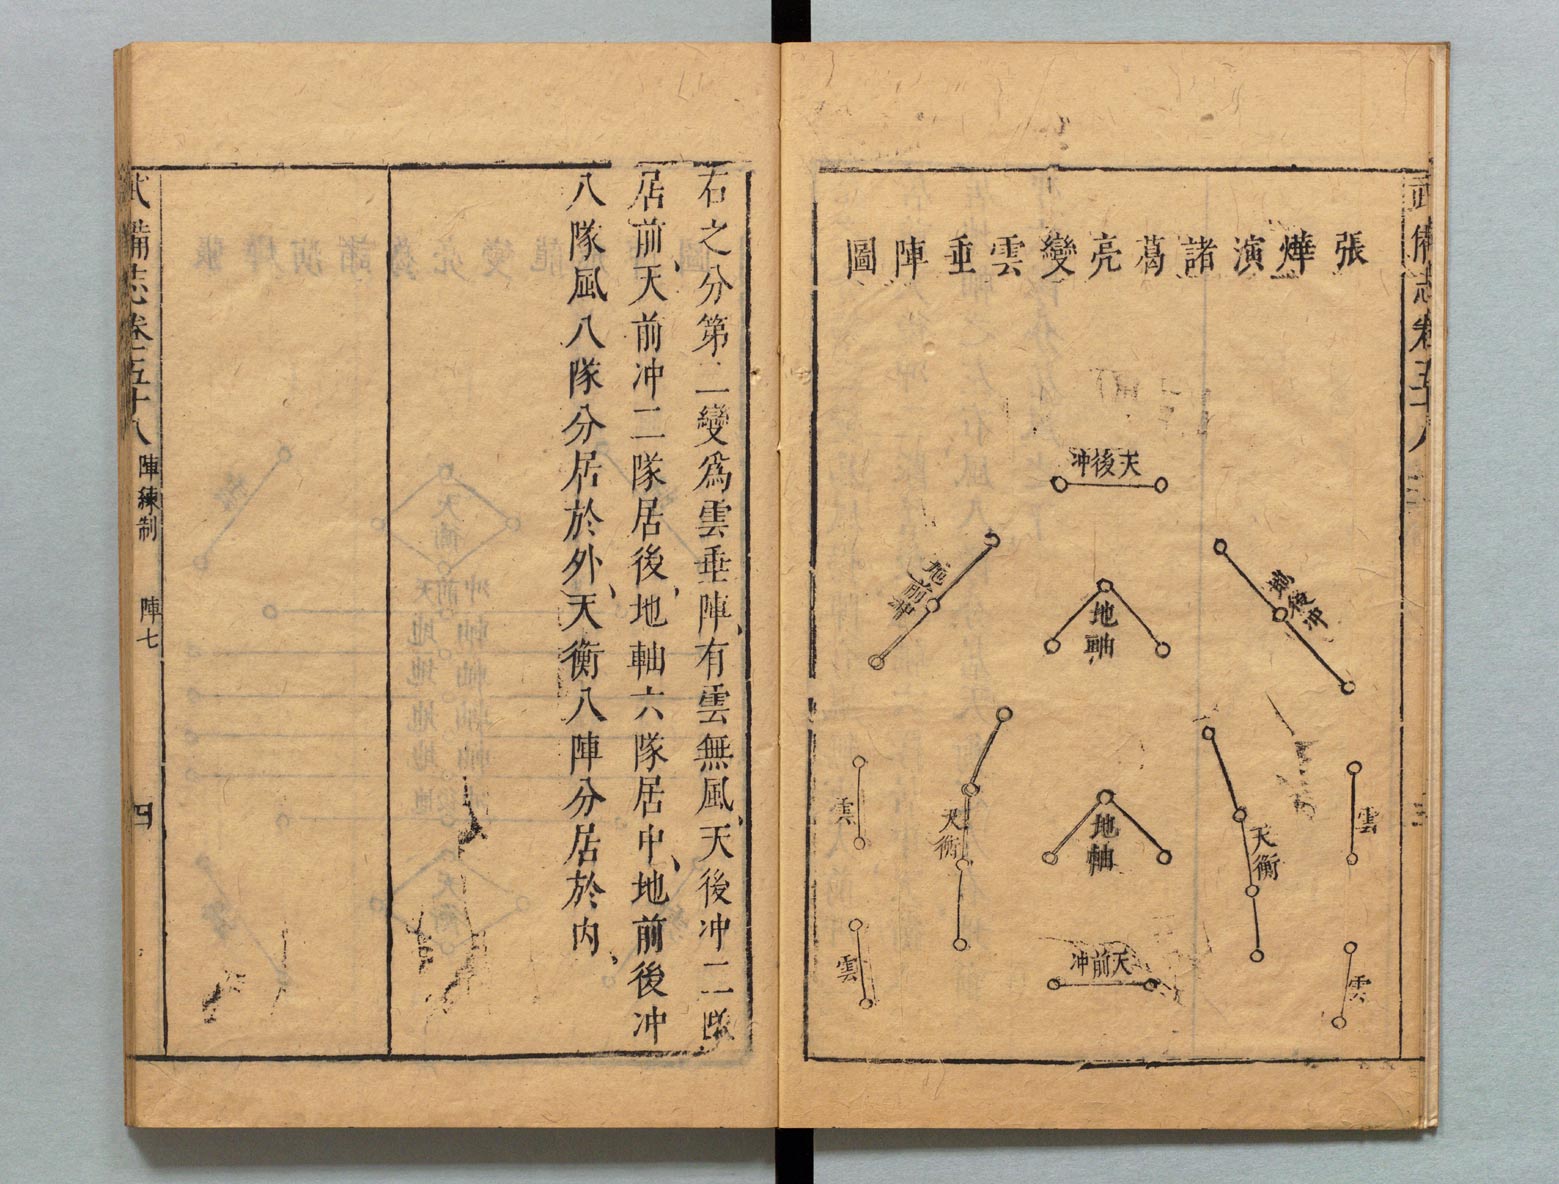 武備志卷五十八
張燁演諸葛亮變雲垂陣圖
天後冲
地後冲
地前冲
地軸
雲
天衡
地軸
天衡
雲
雲
天前冲
雲
右之分第二變爲雲垂陣、有雲無風、天後冲二隊
居前、天前冲二隊居後、地軸六隊居中、地前後冲
八隊風八隊分居於外、天衡八陣分居於内、
武備志卷五十八
陣練制
陣七
四